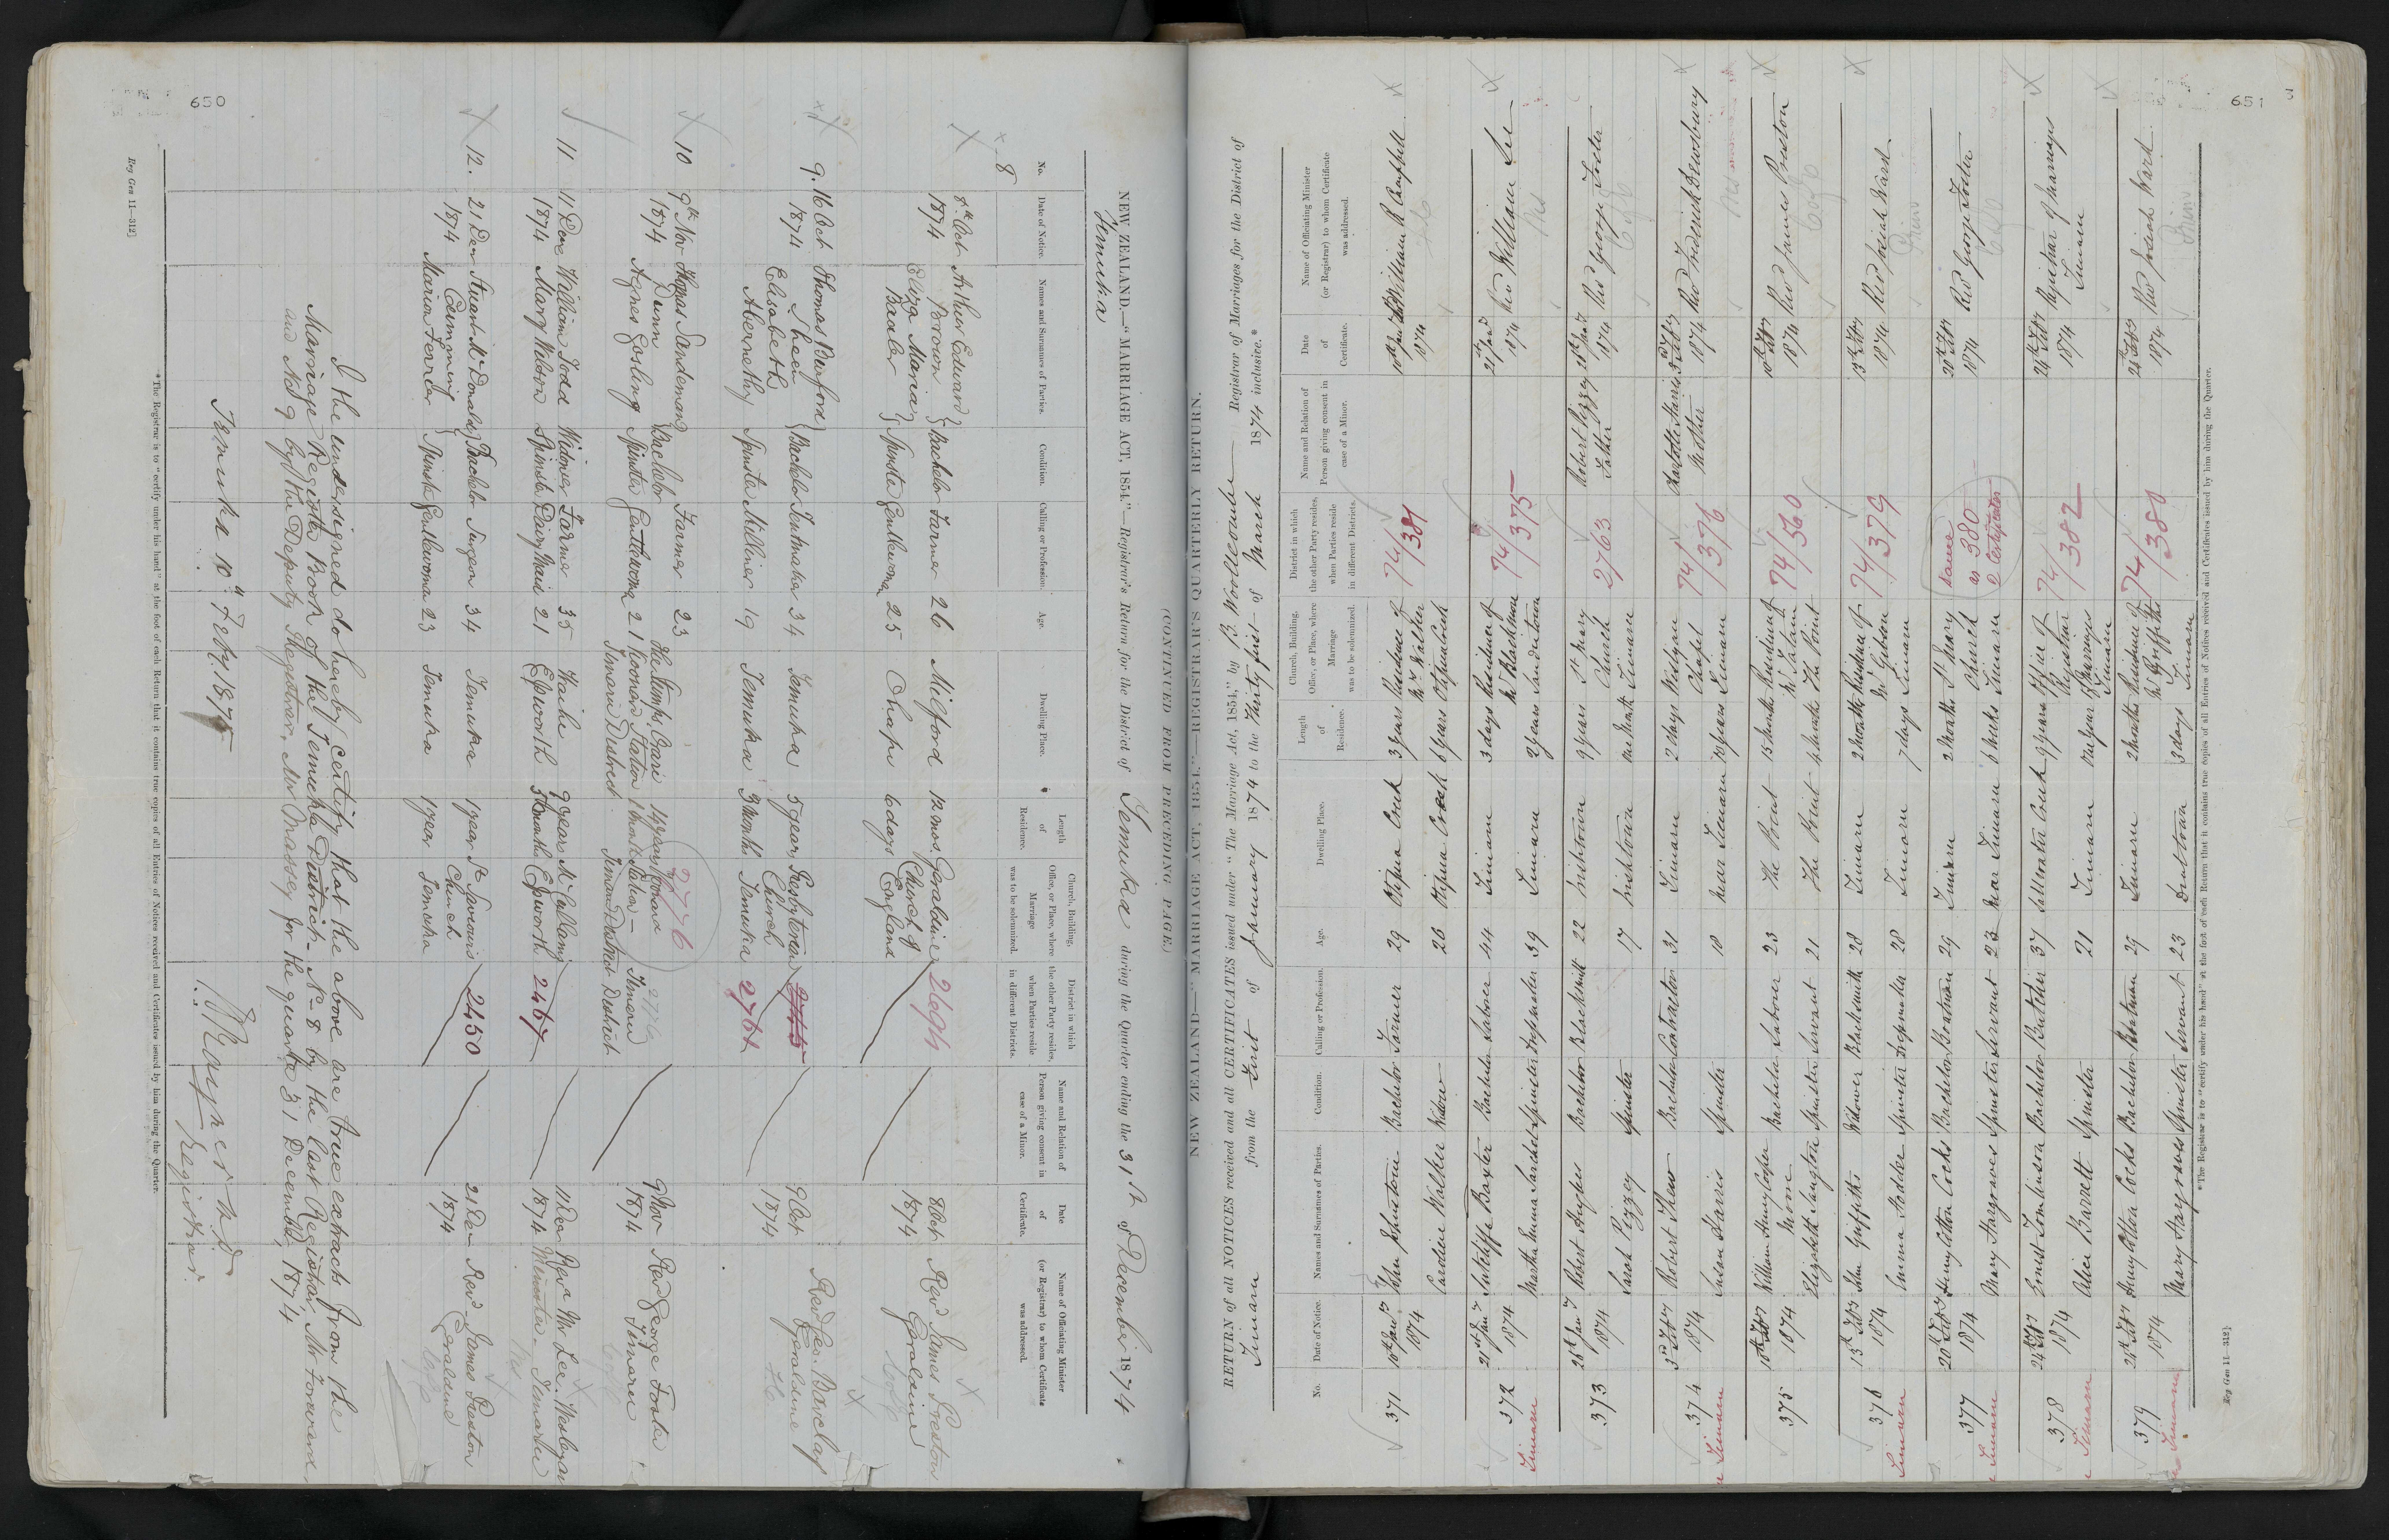 650
NEW ZEALAND.—"MARRIAGE ACT, 1854."—Registrar's Return for the District of Temuka during the Quarter ending the 31st of December 1874
Temuka
No.
Date of Notice.
Names and Surnames of Parties.
Condition.
Calling or Profession.
Age.
Dwelling Place.
Length of Residence.
Church, Building, Office, or Place, where Marriage was to be solemnized.
District in which the other Party resides, when Parties reside in different Districts.
Name and Relation of Person giving consent in case of a Minor.
Date of Certificate.
Name of Officiating Minister (or Registrar) to whom Certificate was addressed.
8 8th Oct 1874 Arthur Edward Brown Bachelor Farmer 26 Milford 12 mos. Geraldine 2694 8 Oct 1874 Rev James Preston Geraldine
Eliza Maria Spinster Gentlewoman 25 Orapi 6 days Church of England
9. 16 Oct 1874 Thomas Burford Sheen Bachelor Tentmaker 34 Temuka 5 years Presbyterian Church 9 Oct 1874 Revd Geo. Barclay Geraldine
Elisabeth Abernethy Spinster Milliner 19 Temuka 3 months Temuka 2764
10 9th Nov 1874 Thomas Sandeman Dunn Bachelor Farmer 23 Orari 14 years 2776 Timaru District 9 Nov 1874 Rev George Foster Timaru
Agnes Gosling Spinster Gentlewoman 21 Station Timaru District 1 month Timaru District
11 11 Dec 1874 William Todd Widower Farmer 35 Waihi 9 years 2467 11 Dec 1874 Rev Mr Lee. Wesleyan Minister. Temuka
Mary Watson Spinster Dairy Maid 21 Epworth 3 months Epworth
12. 21 Dec 1874 Stuart McDonald Cumming Bachelor Surgeon 34 Temuka 1 year St Saviours Church 2450 21 Dec 1874 Revd James Preston Geraldine
Marion Ferrier Spinster Gentlewoman 23 Temuka 1 year Temuka
I the undersigned do hereby certify that the above are true extracts from the
Marriage Register Book of the Temuka District. No 8 by the last Registrar, Mr
and No 9 by the Deputy Registrar, Mr Massey for the quarter 31 December, 1874
Temuka 10th Feby 1875
Rayner M.D.
Registrar.
* The Registrar is to "certify under his hand" at the foot of each Return that it contains true copies of all Entries of Notices received and Certificates issued by him during the Quarter.
Reg Gen 11—312]
(CONTINUED FROM PRECEDING PAGE)
651
NEW ZEALAND—"MARRIAGE ACT, 1854."—REGISTRAR'S QUARTERLY RETURN.
RETURN of all NOTICES received and all CERTIFICATES issued under "The Marriage Act, 1854," by B. Woollcombe Registrar of Marriages for the District of
Timaru from the First of January 1874 to the Thirty first of March 1874 inclusive.*
No.
Date of Notice.
Names and Surnames of Parties.
Condition.
Calling or Profession.
Age.
Dwelling Place.
Length of Residence.
Church, Building, Office, or Place, where Marriage was to be solemnized.
District in which the other Party resides, when Parties reside in different Districts.
Name and Relation of Person giving consent in case of a Minor.
Date of Certificate.
Name of Officiating Minister (or Registrar) to whom Certificate was addressed.
371 10th Jany 1874 John Johnstone Bachelor Farmer 29 Otipua Creek 3 years Residence of Mr Walker 74/381 10th Jany 1874 Revd William R Campbell
Caroline Walker Widow 26 Otipua Creek 6 years Otipua Creek
372 21st Jany 1874 Sutcliffe Baxter Bachelor Laborer 44 Timaru 3 days Residence of Mr Blackmore 74/375 21st Jany 1874 Revd William Lee
Timaru Martha Emma Satchel Spinster Dressmaker 39 Timaru 2 years Sandietown
373 28th Jany 1874 Robert Hughes Bachelor Blacksmith 22 Irishtown 9 years St Mary Church 2763 Robert Pizzey Father 28th Jany 1874 Revd George Foster
Sarah Pizzey Spinster 17 Irishtown one Month Timaru
374 3rd Feby 1874 Robert Thew Bachelor Contractor 31 Timaru 2 days Wesleyan Chapel 74/376 Charlotte Harris Mother 3rd Feby 1874 Revd Frederick Dewsbury
Timaru Susan Harris Spinster 18 near Timaru 10 years Timaru
375 10th Feby 1874 William Henry Cooper Bachelor Laborer 23 The Point 15 months Residence of 74/560 10th Feby 1874 Revd James Preston
Elizabeth Langton Spinster Servant 21 The Point 4 months The Point
376 13th Feby 1874 John Griffiths Widower Blacksmith 28 Timaru 2 months Residence of Mr Gibson 74/379 13th Feby 1874 Revd Josiah Ward.
Timaru Emma Hodder Spinster Dressmaker 28 Timaru 7 days Timaru
377 20th Feby 1874 Henry Otton Cocks Bachelor Boatman 29 Timaru 2 Months St Mary Church same as 380 2 Certificates 20th Feby 1874 Revd George Foster
Timaru Mary Hargraves Spinster Servant 23 near Timaru 6 weeks Timaru
378 24th Feby 1874 Ernest Tomlinson Bachelor Butcher 37 Saltwater Creek 9 years Office of Registrar of Marriages Timaru 74/382 24th Feby 1874 Registrar of Marriages Timaru
Timaru Alice Barrett Spinster 21 Timaru one year
379 28th Feby 1874 Henry Otton Cocks Bachelor Boatman 29 Timaru 2 months Residence of Mr Griffiths 74/380 28th Feby 1874 Revd Josiah Ward.
Timaru Mary Hargraves Spinster Servant 23 3 days Timaru
* The Registrar is to "certify under his hand" at the foot of each Return that it contains true copies of all Entries of Notices received and Certificates issued by him during the Quarter.
Reg Gen 11—312]